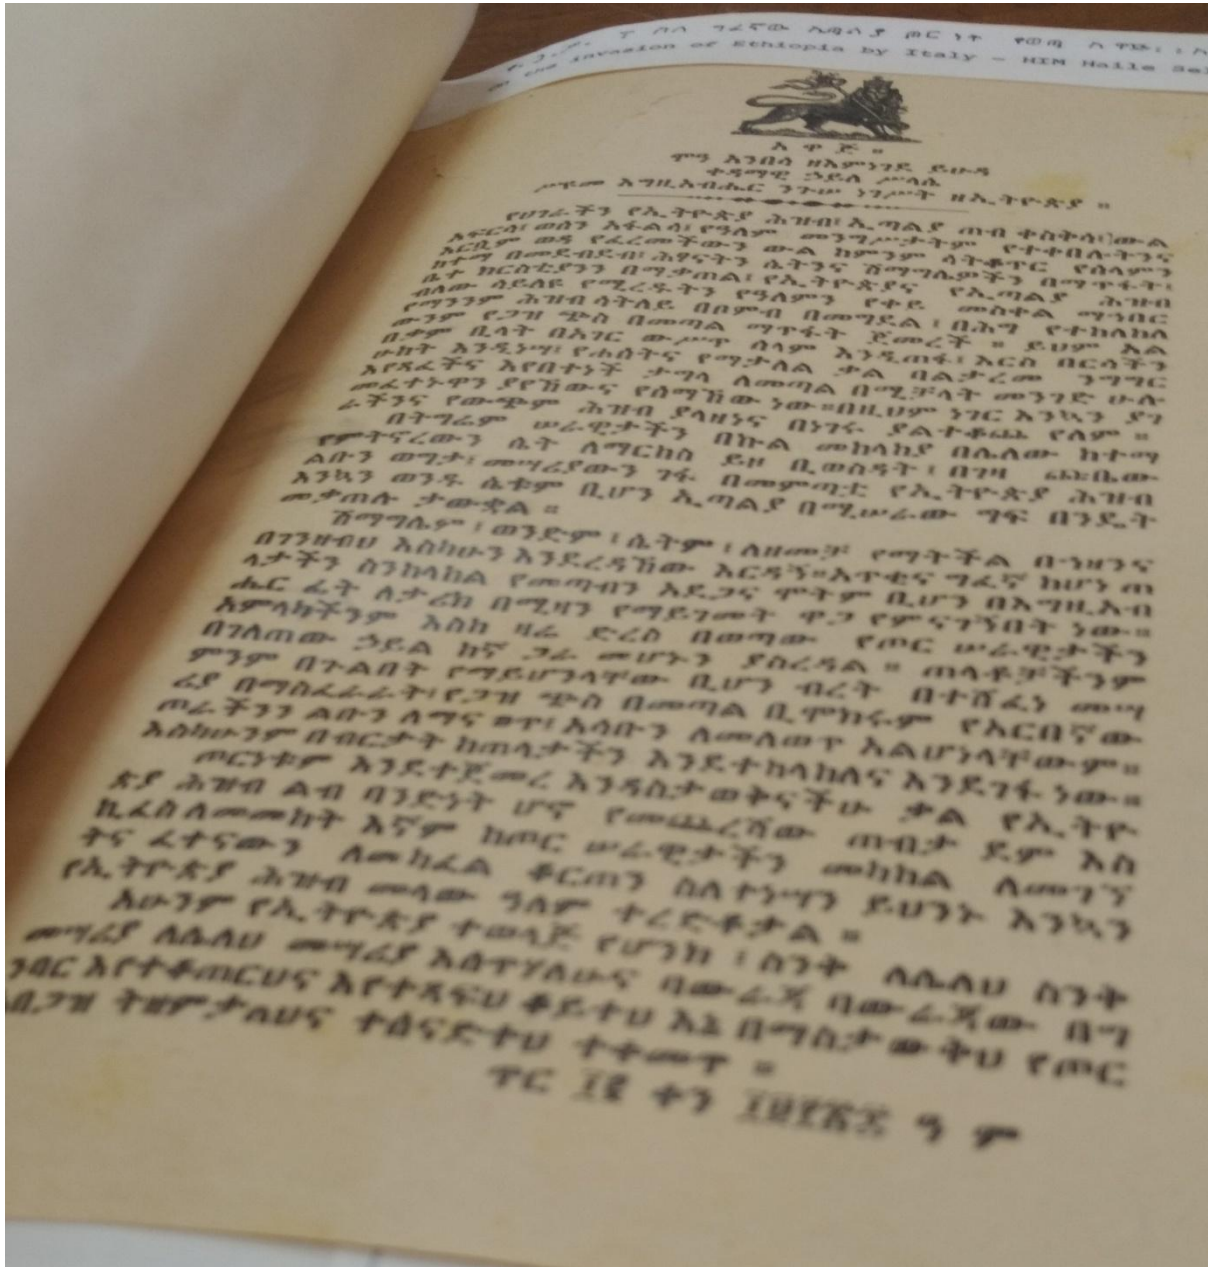 ስለ ጦርነት የወጣ
on the invasion of Ethiopia by Italy - HIM Haile Sel
አዋጅ ።
ሞዓ አንበሳ ዘእምነገደ ይሁዳ
ቀዳማዊ ኃይለ ሥላሴ
ሥዩመ እግዚአብሔር ንጉሠ ነገሥት ዘኢትዮጵያ ።
የሀገራችን የኢትዮጵያ ሕዝብ፤ ኢጣልያ ጠብ ቀስቅሳ፤ ውል
አፍርሳ፤ ወሰን አፋልሳ፤ የዓለም መንግሥታትም የተቀበሉትንና
እርሷም ወዳ የፈረመችውን ውል ከምንም ሳትቆጥር የሰላምን
ከተማ በመደብደብ፤ ሕፃናትን ሴትንና ሽማግሌዎችን በማጥፋት፤
ቤተ ክርስቲያንን በማቃጠል፤ የኢትዮጵያና የኢጣልያ ሕዝብ
ብለው ሳይለዩ የሚረዱትን የዓለምን የቀይ መስቀል ማኅበር
የማንንም ሕዝብ ሳትለይ በቦምብ በመግደል ፤ በሕግ የተከለከለ
ውንም የጋዝ ጭስ በመጣል ማጥፋት ጀመረች ። ይህም አል
በቃም ቢላት በአገር ውሥጥ ሰላም እንዲጠፋ፤ እርስ በርሳችን
ሁከት እንዲነሣ፤ የሐሰትና የማታለል ቃል ባልታረመ ንግግር
እየጻፈችና እየበተነች ታግላ ለመጣል በሚቻላት መንገድ ሁሉ
መፈተኑዋን ያየኸውና የሰማኸው ነው ። በዚህም ነገር እንኳን ያገ
ራችንና የውጭም ሕዝብ ያላዘነና በነገሩ ያልተቆጨ የለም ።
በትግሬም ሠራዊታችን በኩል መከላከያ በሌለው ከተማ
የምትኖረውን ሴት ለማርከስ ይዞ ቢወስዳት ፤ በገዛ ጩቤው
ልቡን ወግታ፤ መሣሪያውን ገፋ በመምጣቷ የኢትዮጵያ ሕዝብ
እንኳን ወንዱ ሴቱም ቢሆን ኢጣልያ በሚሠራው ግፍ በንዴት
መቃጠሉ ታውቋል ።
ሽማግሌም ፤ ወንድም ፤ ሴትም ፤ ለዘመቻ የማትችል በኀዘንና
በገንዘብህ እስካሁን እንደረዳኸው እርዳኝ ። አጥቂና ግፈኛ ከሆነ ጠ
ላታችን ስንከላከል የመጣብን አደጋና ሞትም ቢሆን በእግዚአብ
ሔር ፊት ለታሪክ በሚዛን የማይገመት ዋጋ የምናገኝበት ነው ።
አምላካችንም እስከ ዛሬ ድረስ በወጣው የጦር ሠራዊታችን
በገለጠው ኃይል ከኛ ጋራ መሆኑን ያስረዳል ። ጠላቶቻችንም
ምንም በጉልበት የማይሆንላቸው ቢሆን ብረት በተሸፈነ መሣ
ሪያ በማስፈራራት፤ የጋዝ ጭስ በመጣል ቢሞክሩም የአርበኛው
ጦራችንን ልቡን ለማናወጥ፤ አሳቡን ለመለወጥ አልሆነላቸውም ።
እስካሁንም በብርታት ከጠላታችን እንደተከላከለና እንደገፋ ነው ።
ጦርነቱም እንደተጀመረ እንዳስታወቅናችሁ ቃል የኢትዮ
ጵያ ሕዝብ ልብ ባንድነት ሆኖ የመጨረሻው ጠብታ ደም እስ
ኪፈስ ለመመከት እኛም ከጦር ሠራዊታችን መከከል ለመገኘ
ትና ፈተናውን ለመከፈል ቆርጠን ስለተነሣን ይህንኑ እንኳን
የኢትዮጵያ ሕዝብ መላው ዓለም ተረድቶታል ።
አሁንም የኢትዮጵያ ተወላጅ የሆንክ ፤ ስንቅ ለሌለህ ስንቅ
መሣሪያ ለሌለህ መሣሪያ እሰጥሃለሁና ባውራጃ ባውራጃው በግ
ንባር እየተቆጠርህና እየተጻፍህ ቆይተህ እኔ በማስታውቅህ የጦር
አበጋዝ ትዘምታለህና ተሰናድተህ ተቀመጥ ።
ጥር ቀን ዓ ም